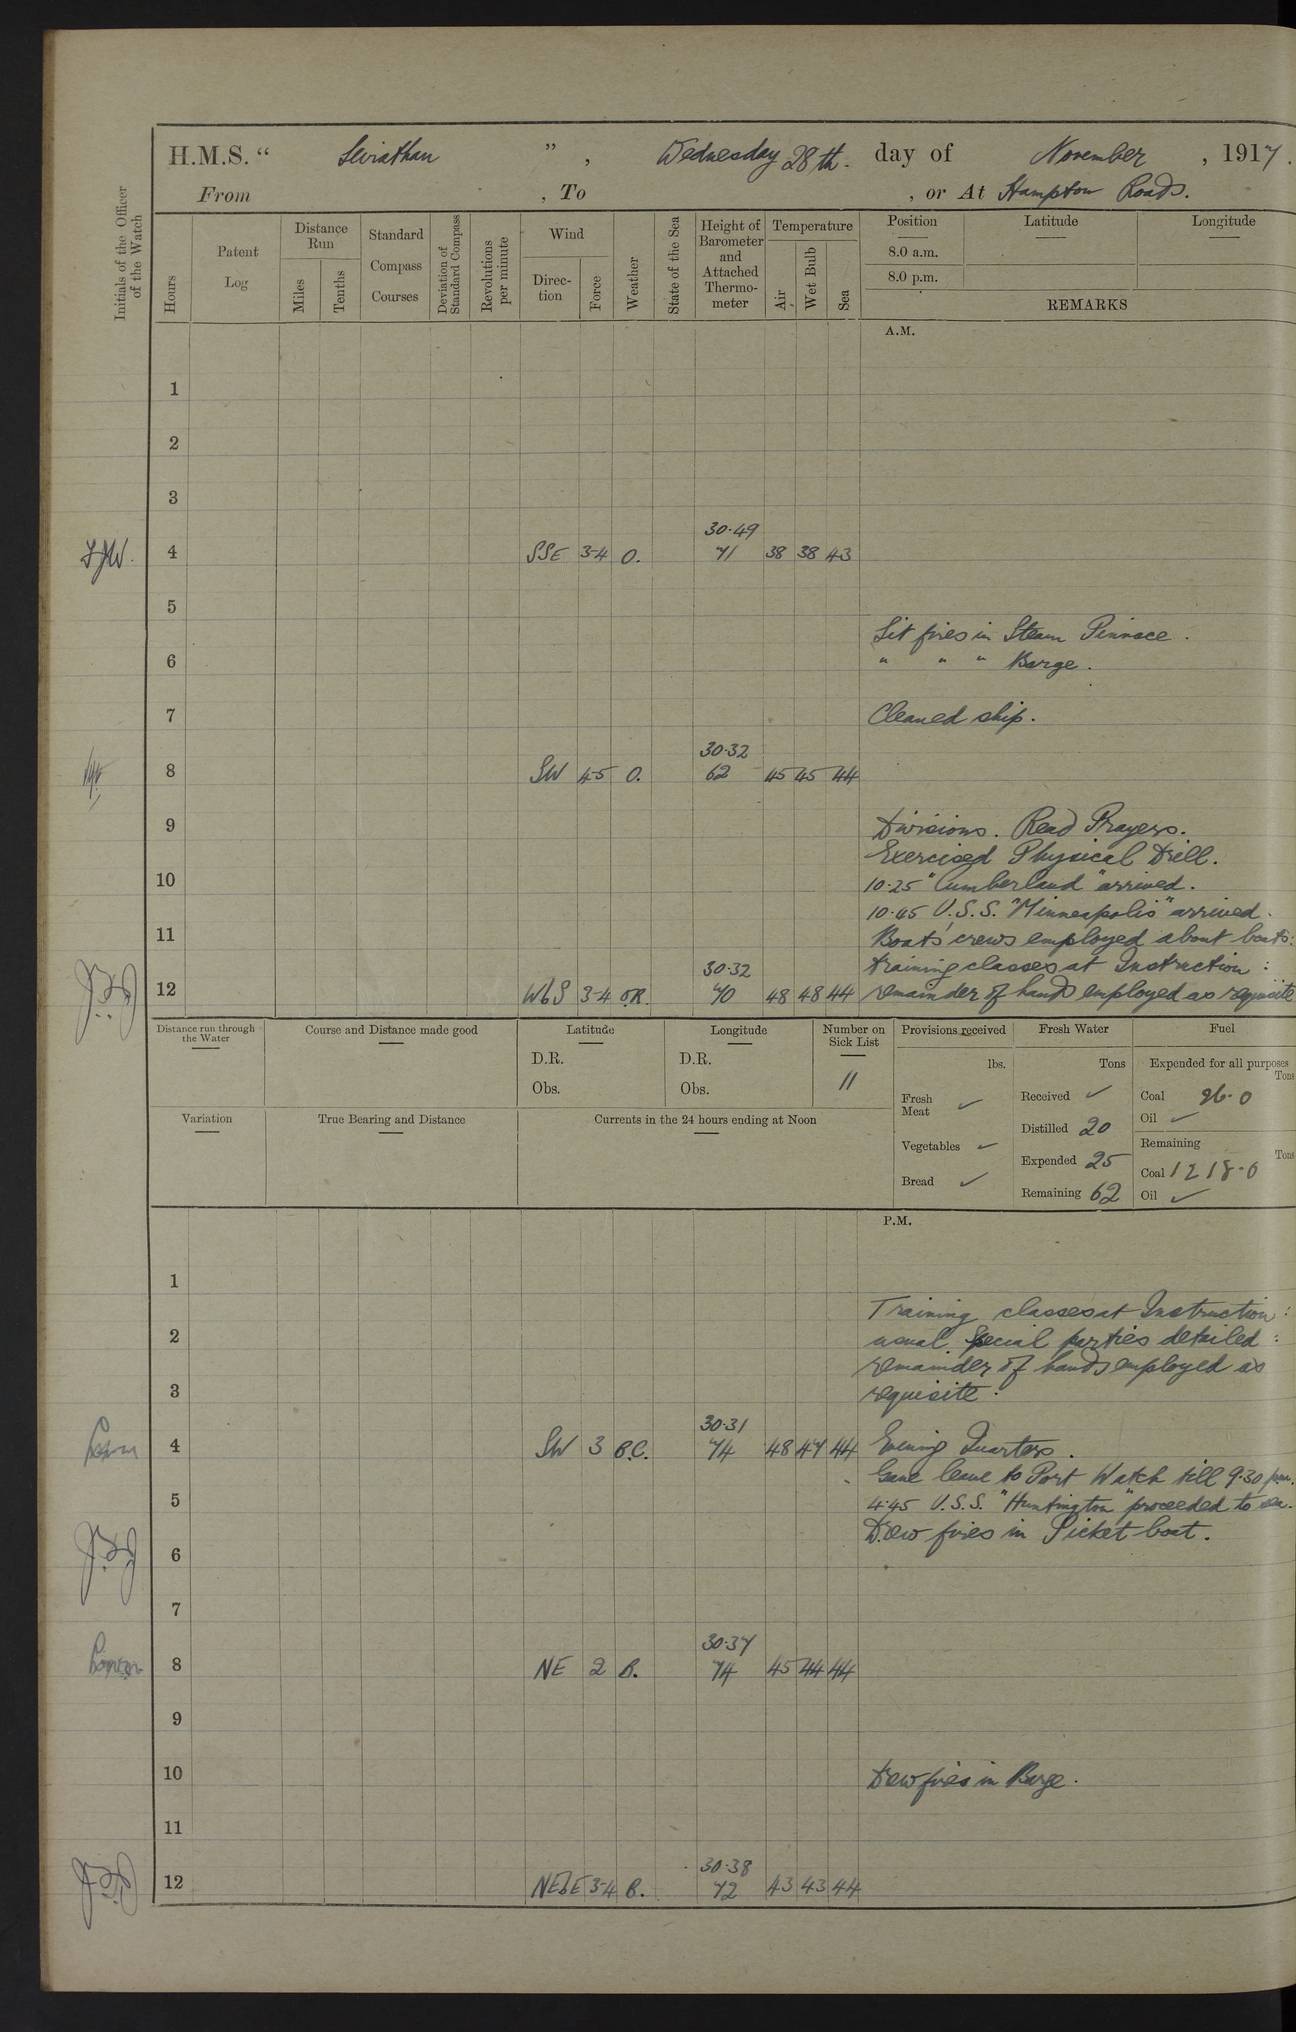 H.M.S. “ Leviathan ” , Wednesday 28th. day of November , 1917.
From , To , or At Hampton Roads.
Initials of the Officer of the Watch
Hours
Patent Log
Distance Run
Miles
Tenths
Standard Compass Courses
Deviation of Standard Compass
Revolutions per minute
Wind
Direction
Force
Weather
State of the Sea
Height of Barometer and Attached Thermometer
Temperature
Air
Wet Bulb
Sea
Position Latitude Longitude
8.0 a.m.
8.0 p.m.
REMARKS
A.M.
1
2
3
30·49
4 SSE 3-4 O. 71 38 38 43
5
Lit fires in Steam Pinnace.
6 " " " Barge.
7 Cleaned ship.
30·32
8 SW 4-5 O. 62 45 45 44
9 Divisions. Read Prayers.
Exercised Physical Drill.
10 10·25 "Cumberland" arrived.
10·45 U.S.S. "Minneapolis" arrived.
11 Boats' crews employed about boats:
30·32 training classes at Instruction:
12 WbS 3-4 O.R. 70 48 48 44 remainder of hands employed as requisite
Distance run through the Water
Course and Distance made good
Latitude
D.R.
Obs.
Longitude
D.R.
Obs.
Number on Sick List
11
Provisions received
lbs.
Fresh Meat ✓
Vegetables ✓
Bread ✓
Fresh Water
Tons
Received ✓
Distilled 20
Expended 25
Remaining 62
Fuel
Expended for all purposes
Tons
Coal 26·0
Oil ✓
Remaining
Tons
Coal 1218·0
Oil ✓
Variation
True Bearing and Distance
Currents in the 24 hours ending at Noon
P.M.
1
Training classes at Instruction:
2 usual special parties detailed:
remainder of hands employed as
3 requisite.
30·31
4 SW 3 B.C. 74 48 47 44 Evening Quarters.
Gave leave to Port Watch till 9·30 p.m.
5 4·45 U.S.S. "Huntington" proceeded to sea.
Drew fires in Picket boat.
6
7
30·37
8 NE 2 B. 74 45 44 44
9
10 Drew fires in Barge.
11
30·38
12 NEbE 3-4 B. 72 43 43 44